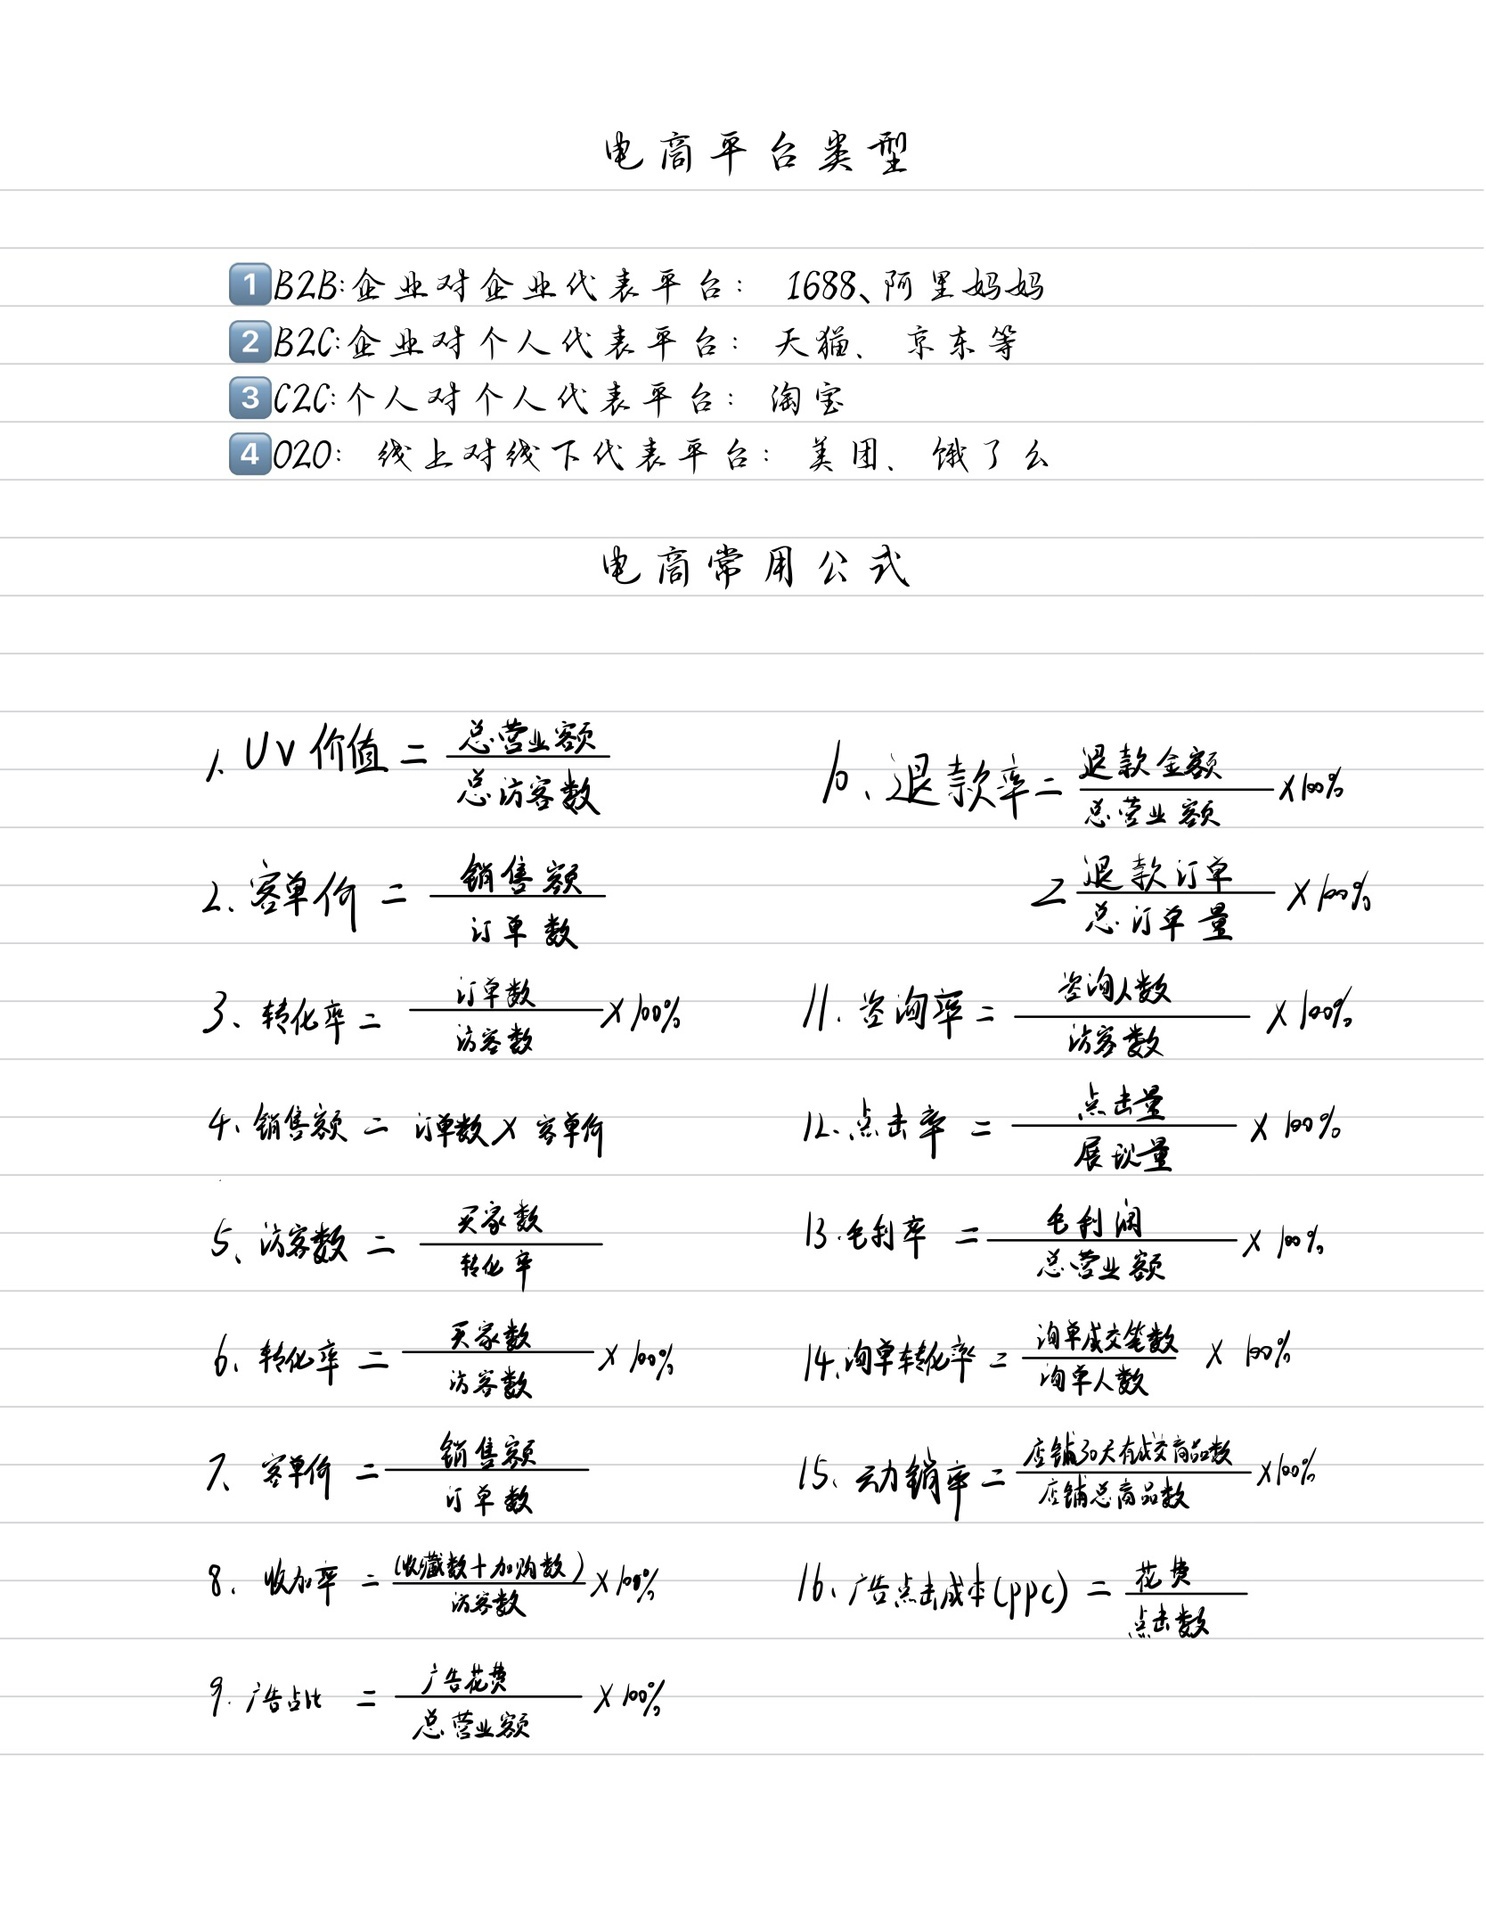 电商平台类型
1 B2B:企业对企业代表平台： 1688、阿里妈妈
2 B2C:企业对个人代表平台： 天猫、京东等
3 C2C:个人对个人代表平台： 淘宝
4 O2O： 线上对线下代表平台： 美团、饿了么
电商常用公式
1、UV价值 = 总营业额
总访客数
2、客单价 = 销售额
订单数
3、转化率 = 订单数 ×100%
访客数
4、销售额 = 订单数 × 客单价
5、访客数 = 买家数
转化率
6、转化率 = 买家数 ×100%
访客数
7、客单价 = 销售额
订单数
8、收加率 = (收藏数+加购数) ×100%
访客数
9.广告占比 = 广告花费 ×100%
总营业额
10、退款率= 退款金额 ×100%
总营业额
= 退款订单 ×100%
总订单量
11.咨询率 = 咨询人数 ×100%
访客数
12.点击率 = 点击量 ×100%
展现量
13.毛利率 = 毛利润 ×100%
总营业额
14.询单转化率 = 询单成交笔数 ×100%
询单人数
15、动销率 = 店铺30天有成交商品数 ×100%
店铺总商品数
16、广告点击成本(ppc) = 花费
点击数